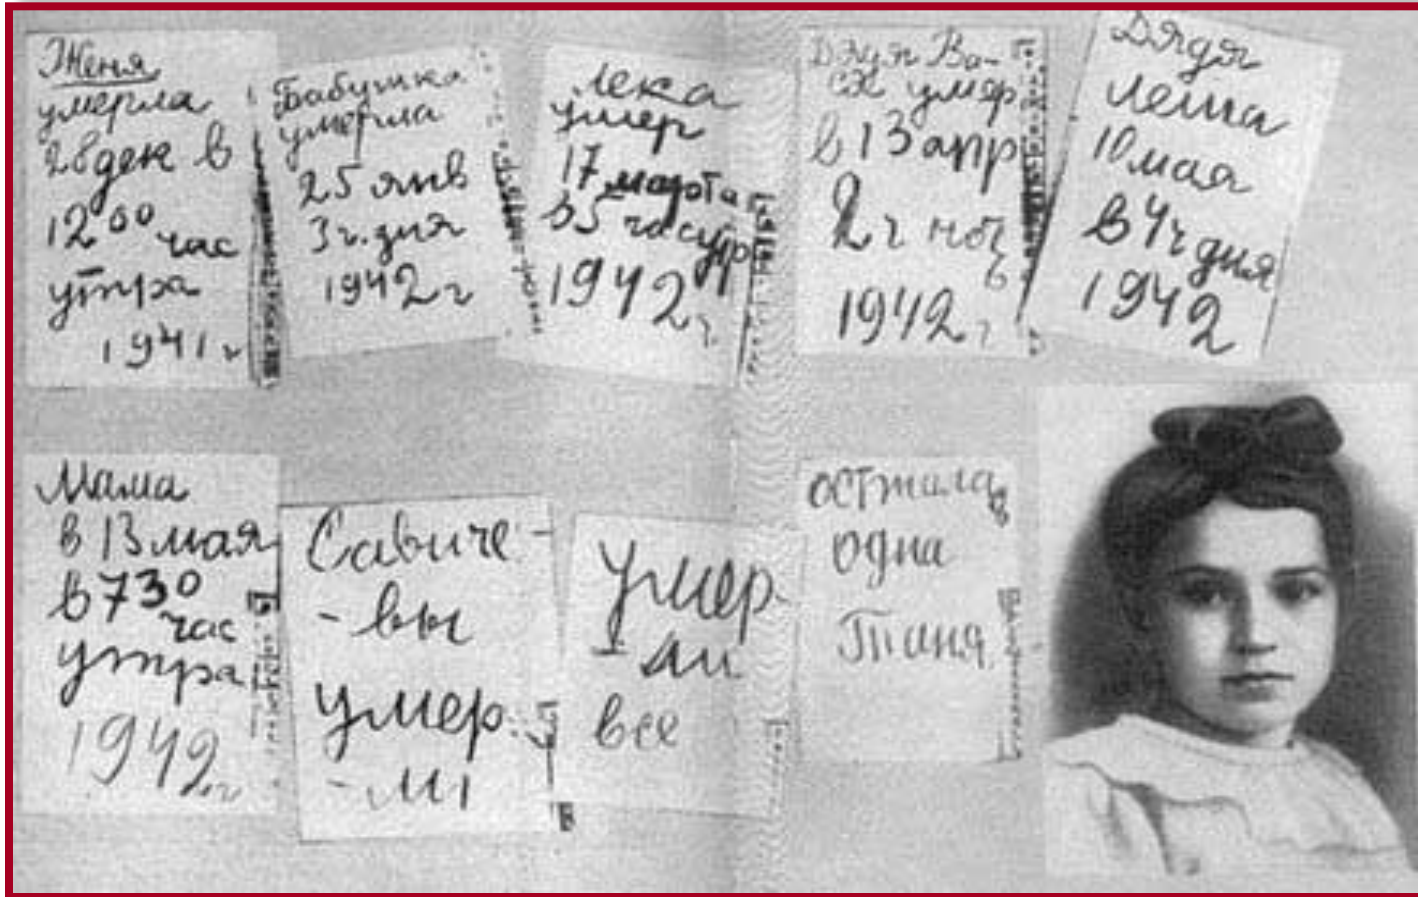 Женя
умерла
28 дек в
12 00 час
утра
1941 г
Бабушка
умерла
25 янв
3 ч. дня
1942 г
Лека
умер
17 марта
в 5 час утр
1942 г.
Дядя Ва-
ся умер
в 13 апр
2 ч ноч
ь
1942 г
Дядя
Леша
10 мая
в 4 ч дня
1942
Мама
в 13 мая
в 7 30
час
утра
1942 г
Савиче-
-вы
умер.
-ли
умер-
-ли
все
осталась
одна
Таня